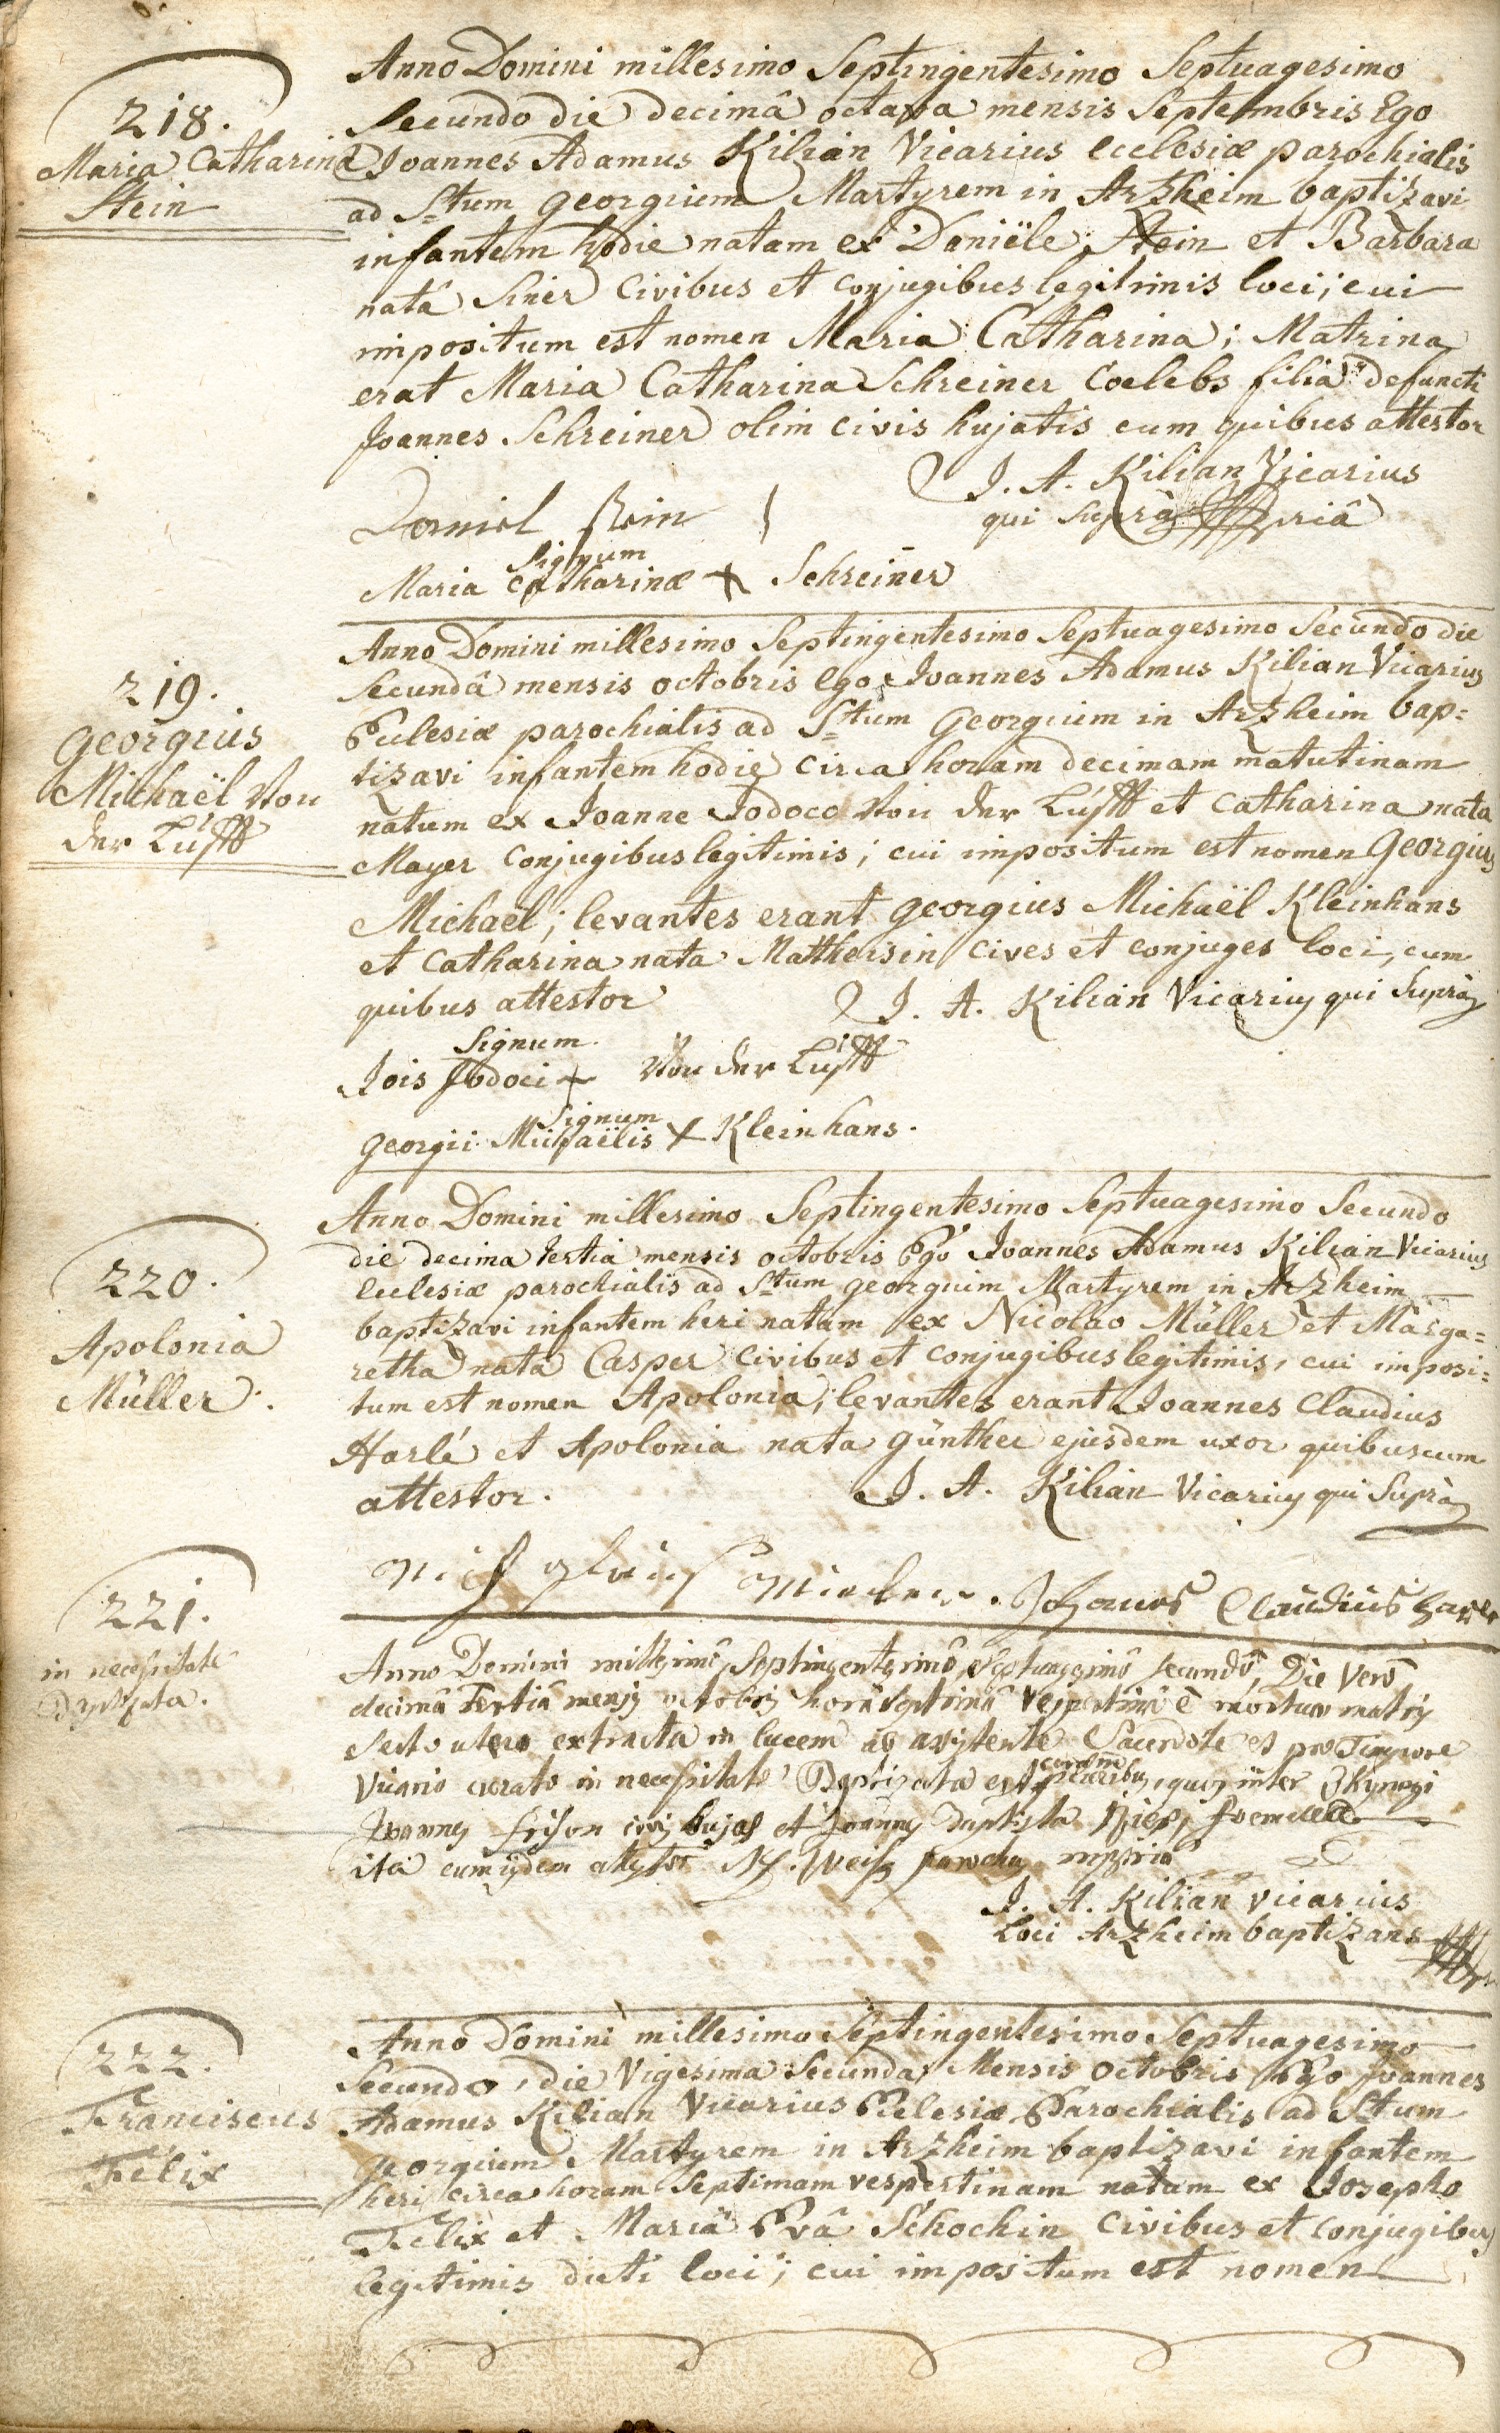 218.
Maria Catharina
Stein
Anno Domini millesimo Septingentesimo Septuagesimo
Secundo die decimâ octava mensis Septembris Ego
Joannes Adamus Kilian Vicarius Ecclesiæ parochialis
ad Stum georgium Martyrem in Arzheim baptizavi
infantem hodie natam ex Daniële Stein et Barbara
natâ Siner Civibus et conjugibus legitimis loci; cui
impositum est nomen Maria Catharina; Matrina
erat Maria Catharina Schreiner Coelebs filia defuncti
Joannes Schreiner olim civis hujatis cum quibus attestor
J. A. Kilian Vicarius
qui Suprà
Daniel Stein
Signum
Maria Catharinæ + Schreiner
219.
Georgius
Michaël Von
der Lüfft
Anno Domini millesimo Septingentesimo Septuagesimo Secundo die
Secundâ mensis octobris Ego Joannes Adamus Kilian Vicarius
Ecclesiæ parochialis ad Stum Georgium in Arzheim bap=
tizavi infantem hodie circa horam decimam matutinam
natum ex Joanne Jodoco Von der Lüfft et Catharina nata
Mayer conjugibus legitimis; cui impositum est nomen Georgius
Michaël; levantes erant georgius Michaël Kleinhans
et Catharina nata Matthersin cives et conjuges loci, cum
quibus attestor
J. A. Kilian Vicarius qui Suprà
Signum
Jois Jodoci + Von der Lüfft
Signum
Georgii Michaëlis + Kleinhans.
220.
Apolonia
Müller.
Anno Domini millesimo Septingentesimo Septuagesimo Secundo
die decima tertia mensis octobris Ego Joannes Adamus Kilian Vicarius
Ecclesiæ parochialis ad Stum georgium Martyrem in Arzheim
baptizavi infantem heri natam ex Nicolao Müller et Marga=
retha nata Casper civibus et conjugibus legitimis, cui imposi=
tum est nomen Apolonia; levantes erant Joannes Claudius
Harlé et Apolonia nata günther ejusdem uxor quibuscum
attestor.
J. A. Kilian Vicarius qui Suprà
Johannes Claudius
221.
in necessitate
Baptizata.
Anno Domini millesimô Septingentesimô Septuagesimô secundô, Die verô
decimâ Tertiâ mensis octobris horâ septimâ vespertinâ è mortuae matris
secto utero extracta in lucem ab assistente Sacerdote et pro Tempore
Vicario curato in necessitate Baptizata est coram pluribus, quos inter
Joannes frison civis hujas et Joannes Baptista
ita cum iisdem attestor Weiss parochus mppriâ
J. A. Kilian Vicarius
Loci Arzheim baptizans
222.
Franciscus
Felix
Anno Domini millesimo Septingentesimo Septuagesimo
Secundo, die Vigesima Secunda Mensis Octobris Ego Joannes
Adamus Kilian Vicarius Ecclesiæ Parochialis ad Stum
georgium Martyrem in Arzheim baptizavi infantem
heri circa horam Septimam vespertinam natum ex Josepho
Felix et Mariâ Evâ Schochin Civibus et conjugibus
legitimis dicti loci; cui impositum est nomen